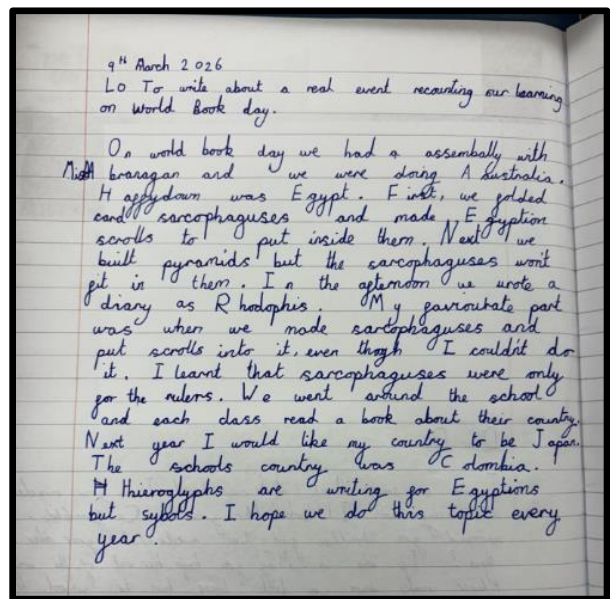 9th March 2026
LO To write about a real event recounting our learning
on World Book day.
On world book day we had a assembally with
branagan and we were doing Australia.
Haffydown was Egypt. First, we folded
card sarcophaguses and made Egyption
scrolls to put inside them. Next we
built pyramids but the sarcophaguses won't
fit in them. In the afternoon we wrote a
diary as Rhodophis. My faviourate part
was when we made sarcophaguses and
put scrolls into it, even thogh I couldn't do
it. I learnt that sarcophaguses were only
for the rulers. We went around the school
and each class read a book about their country.
Next year I would like my country to be Japan.
The schools country was Colombia.
Hhieroglyphs are writing for Egyptions
but sybols. I hope we do this topic every
year.